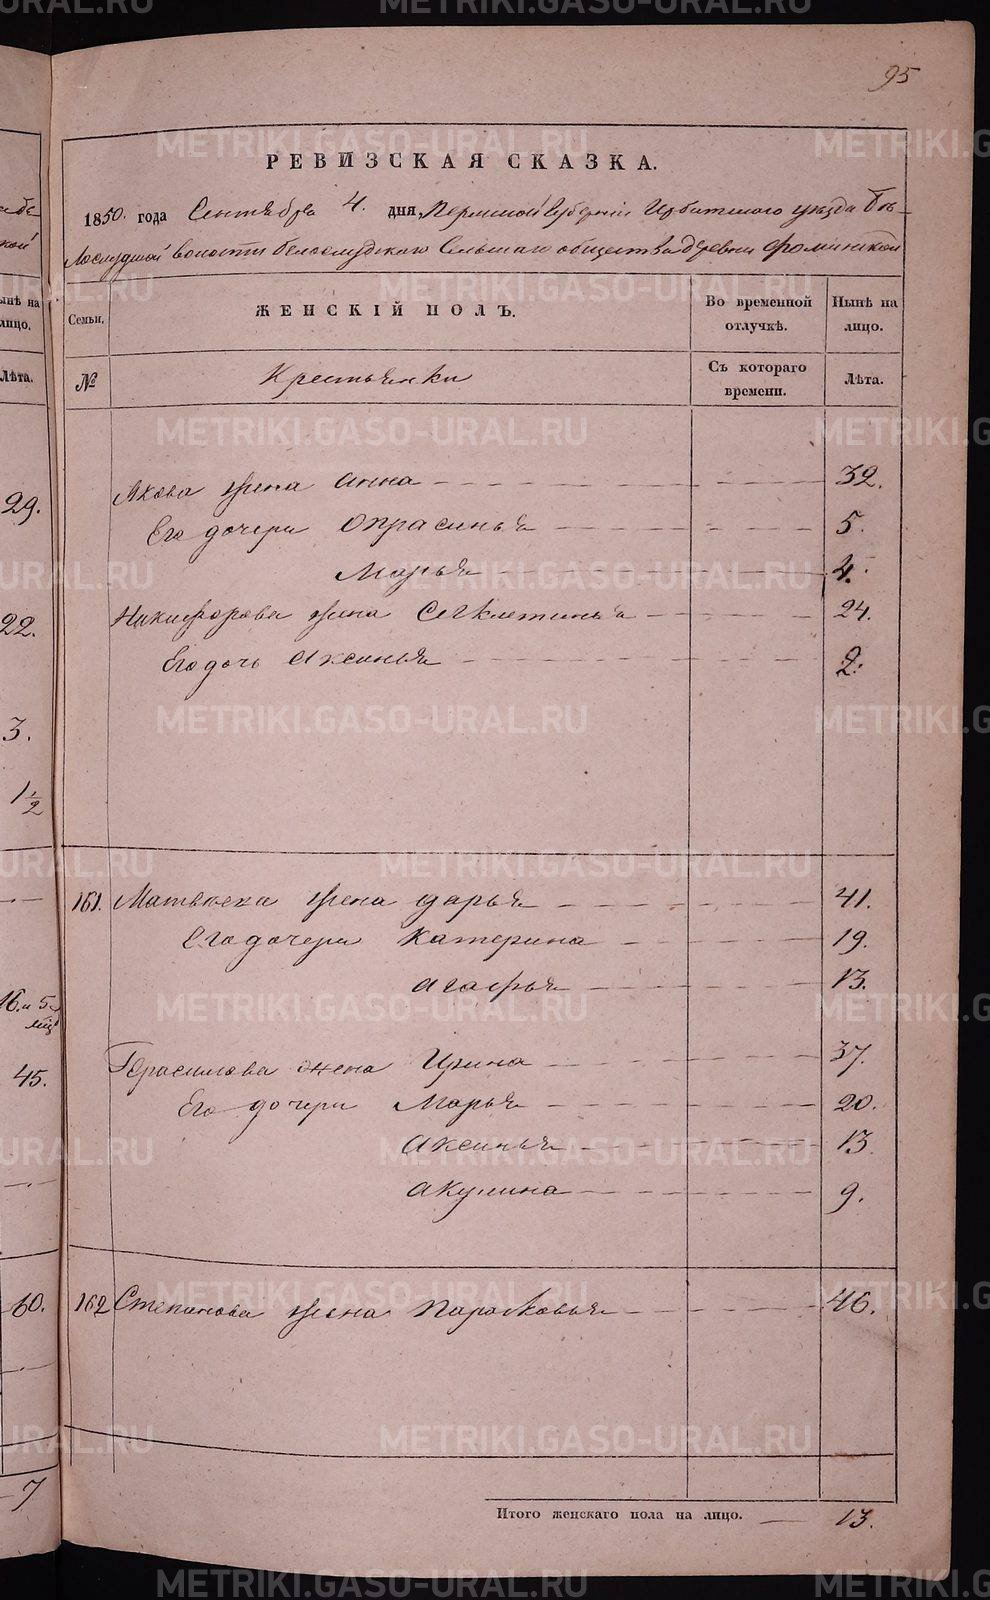 95
РЕВИЗСКАЯ СКАЗКА.
1850. года Сентября 4. дня, Пермской Губернии Ирбитского уезда Бѣ-
лослудской волости Белослудского Сельскаго общества деревни Фоминской
Семьи. ЖЕНСКІЙ ПОЛЪ. Во временной отлучкѣ. Нынѣ на лицо.
№ Крестьянки Съ котораго времени. Лѣта.
Якова жена Анна 32.
Его дочери Опрасинья 5.
Марья 4.
Никифорова жена Секлетинья 24.
Его дочь Аксинья 2.
161. Матвѣева жена Дарья 41.
Его дочери Катерина 19.
Агафья 13.
Герасимова жена Ирина 37.
Его дочери Марья 20.
Аксинья 13.
Акулина 9.
162 Степанова жена Парасковья 46.
Итого женскаго пола на лицо. 13.
нынѣ на
лицо.
Лѣта.
29.
22.
3.
1 1/2
16. и 5
45.
60.
7
METRIKI.GASO-URAL.RU